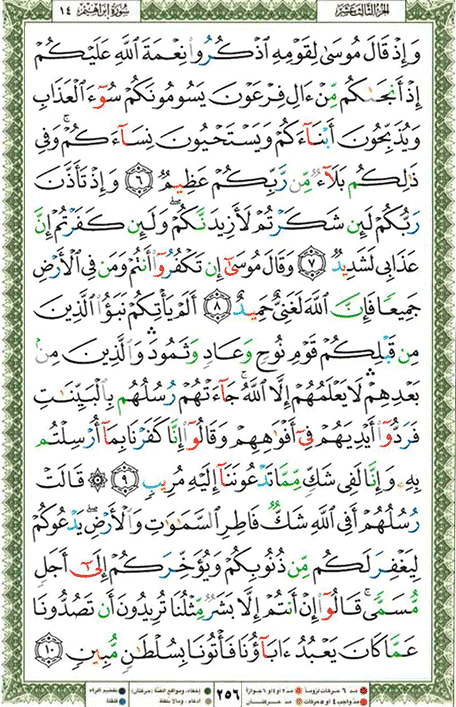 الجزء الثالث عشر
سورة إبراهيم ١٤
وَإِذْ قَالَ مُوسَىٰ لِقَوْمِهِ ٱذْكُرُوا۟ نِعْمَةَ ٱللَّهِ عَلَيْكُمْ
إِذْ أَنجَىٰكُم مِّنْ ءَالِ فِرْعَوْنَ يَسُومُونَكُمْ سُوٓءَ ٱلْعَذَابِ
وَيُذَبِّحُونَ أَبْنَآءَكُمْ وَيَسْتَحْيُونَ نِسَآءَكُمْ ۚ وَفِى
ذَٰلِكُم بَلَآءٌ مِّن رَّبِّكُمْ عَظِيمٌ ٦ وَإِذْ تَأَذَّنَ
رَبُّكُمْ لَئِن شَكَرْتُمْ لَأَزِيدَنَّكُمْ ۖ وَلَئِن كَفَرْتُمْ إِنَّ
عَذَابِى لَشَدِيدٌ ٧ وَقَالَ مُوسَىٰٓ إِن تَكْفُرُوٓا۟ أَنتُمْ وَمَن فِى ٱلْأَرْضِ
جَمِيعًا فَإِنَّ ٱللَّهَ لَغَنِىٌّ حَمِيدٌ ٨ أَلَمْ يَأْتِكُمْ نَبَؤُا۟ ٱلَّذِينَ
مِن قَبْلِكُمْ قَوْمِ نُوحٍ وَعَادٍ وَثَمُودَ ۛ وَٱلَّذِينَ مِنۢ
بَعْدِهِمْ ۛ لَا يَعْلَمُهُمْ إِلَّا ٱللَّهُ ۚ جَآءَتْهُمْ رُسُلُهُم بِٱلْبَيِّنَٰتِ
فَرَدُّوٓا۟ أَيْدِيَهُمْ فِىٓ أَفْوَٰهِهِمْ وَقَالُوٓا۟ إِنَّا كَفَرْنَا بِمَآ أُرْسِلْتُم
بِهِۦ وَإِنَّا لَفِى شَكٍّ مِّمَّا تَدْعُونَنَآ إِلَيْهِ مُرِيبٍ ٩ ۞ قَالَتْ
رُسُلُهُمْ أَفِى ٱللَّهِ شَكٌّ فَاطِرِ ٱلسَّمَٰوَٰتِ وَٱلْأَرْضِ ۖ يَدْعُوكُمْ
لِيَغْفِرَ لَكُم مِّن ذُنُوبِكُمْ وَيُؤَخِّرَكُمْ إِلَىٰٓ أَجَلٍ
مُّسَمًّى ۚ قَالُوٓا۟ إِنْ أَنتُمْ إِلَّا بَشَرٌ مِّثْلُنَا تُرِيدُونَ أَن تَصُدُّونَا
عَمَّا كَانَ يَعْبُدُ ءَابَآؤُنَا فَأْتُونَا بِسُلْطَٰنٍ مُّبِينٍ ١٠
مد ٦ حركات لزوما مد ٢ أو ٤ أو ٦ جوازا
مد واجب ٤ أو ٥ حركات مد حركتان
٢٥٦
إخفاء، ومواقع الغنة (حركتان) تفخيم الراء
إدغام، وما لا يلفظ قلقلة